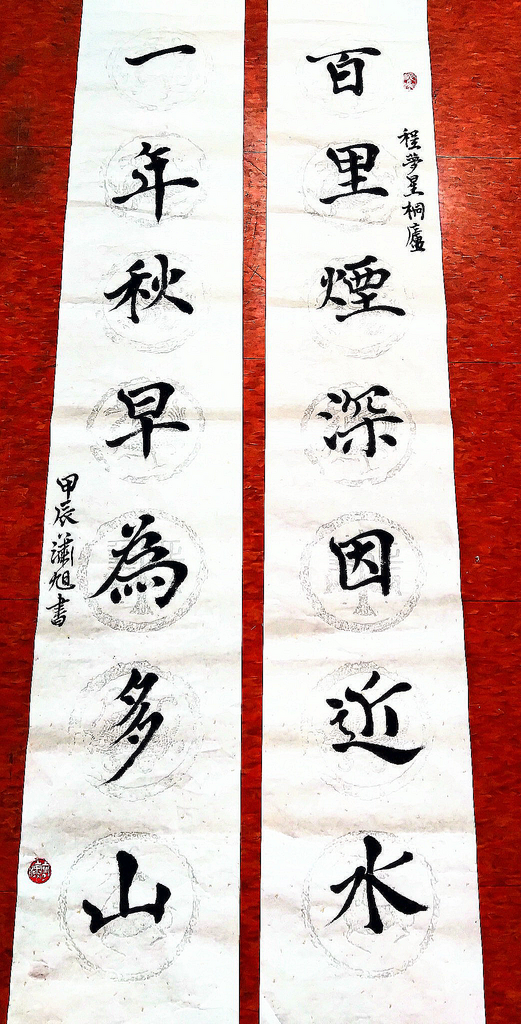 程夢星桐廬
百里煙深因近水
一年秋早為多山
甲辰瀟旭書